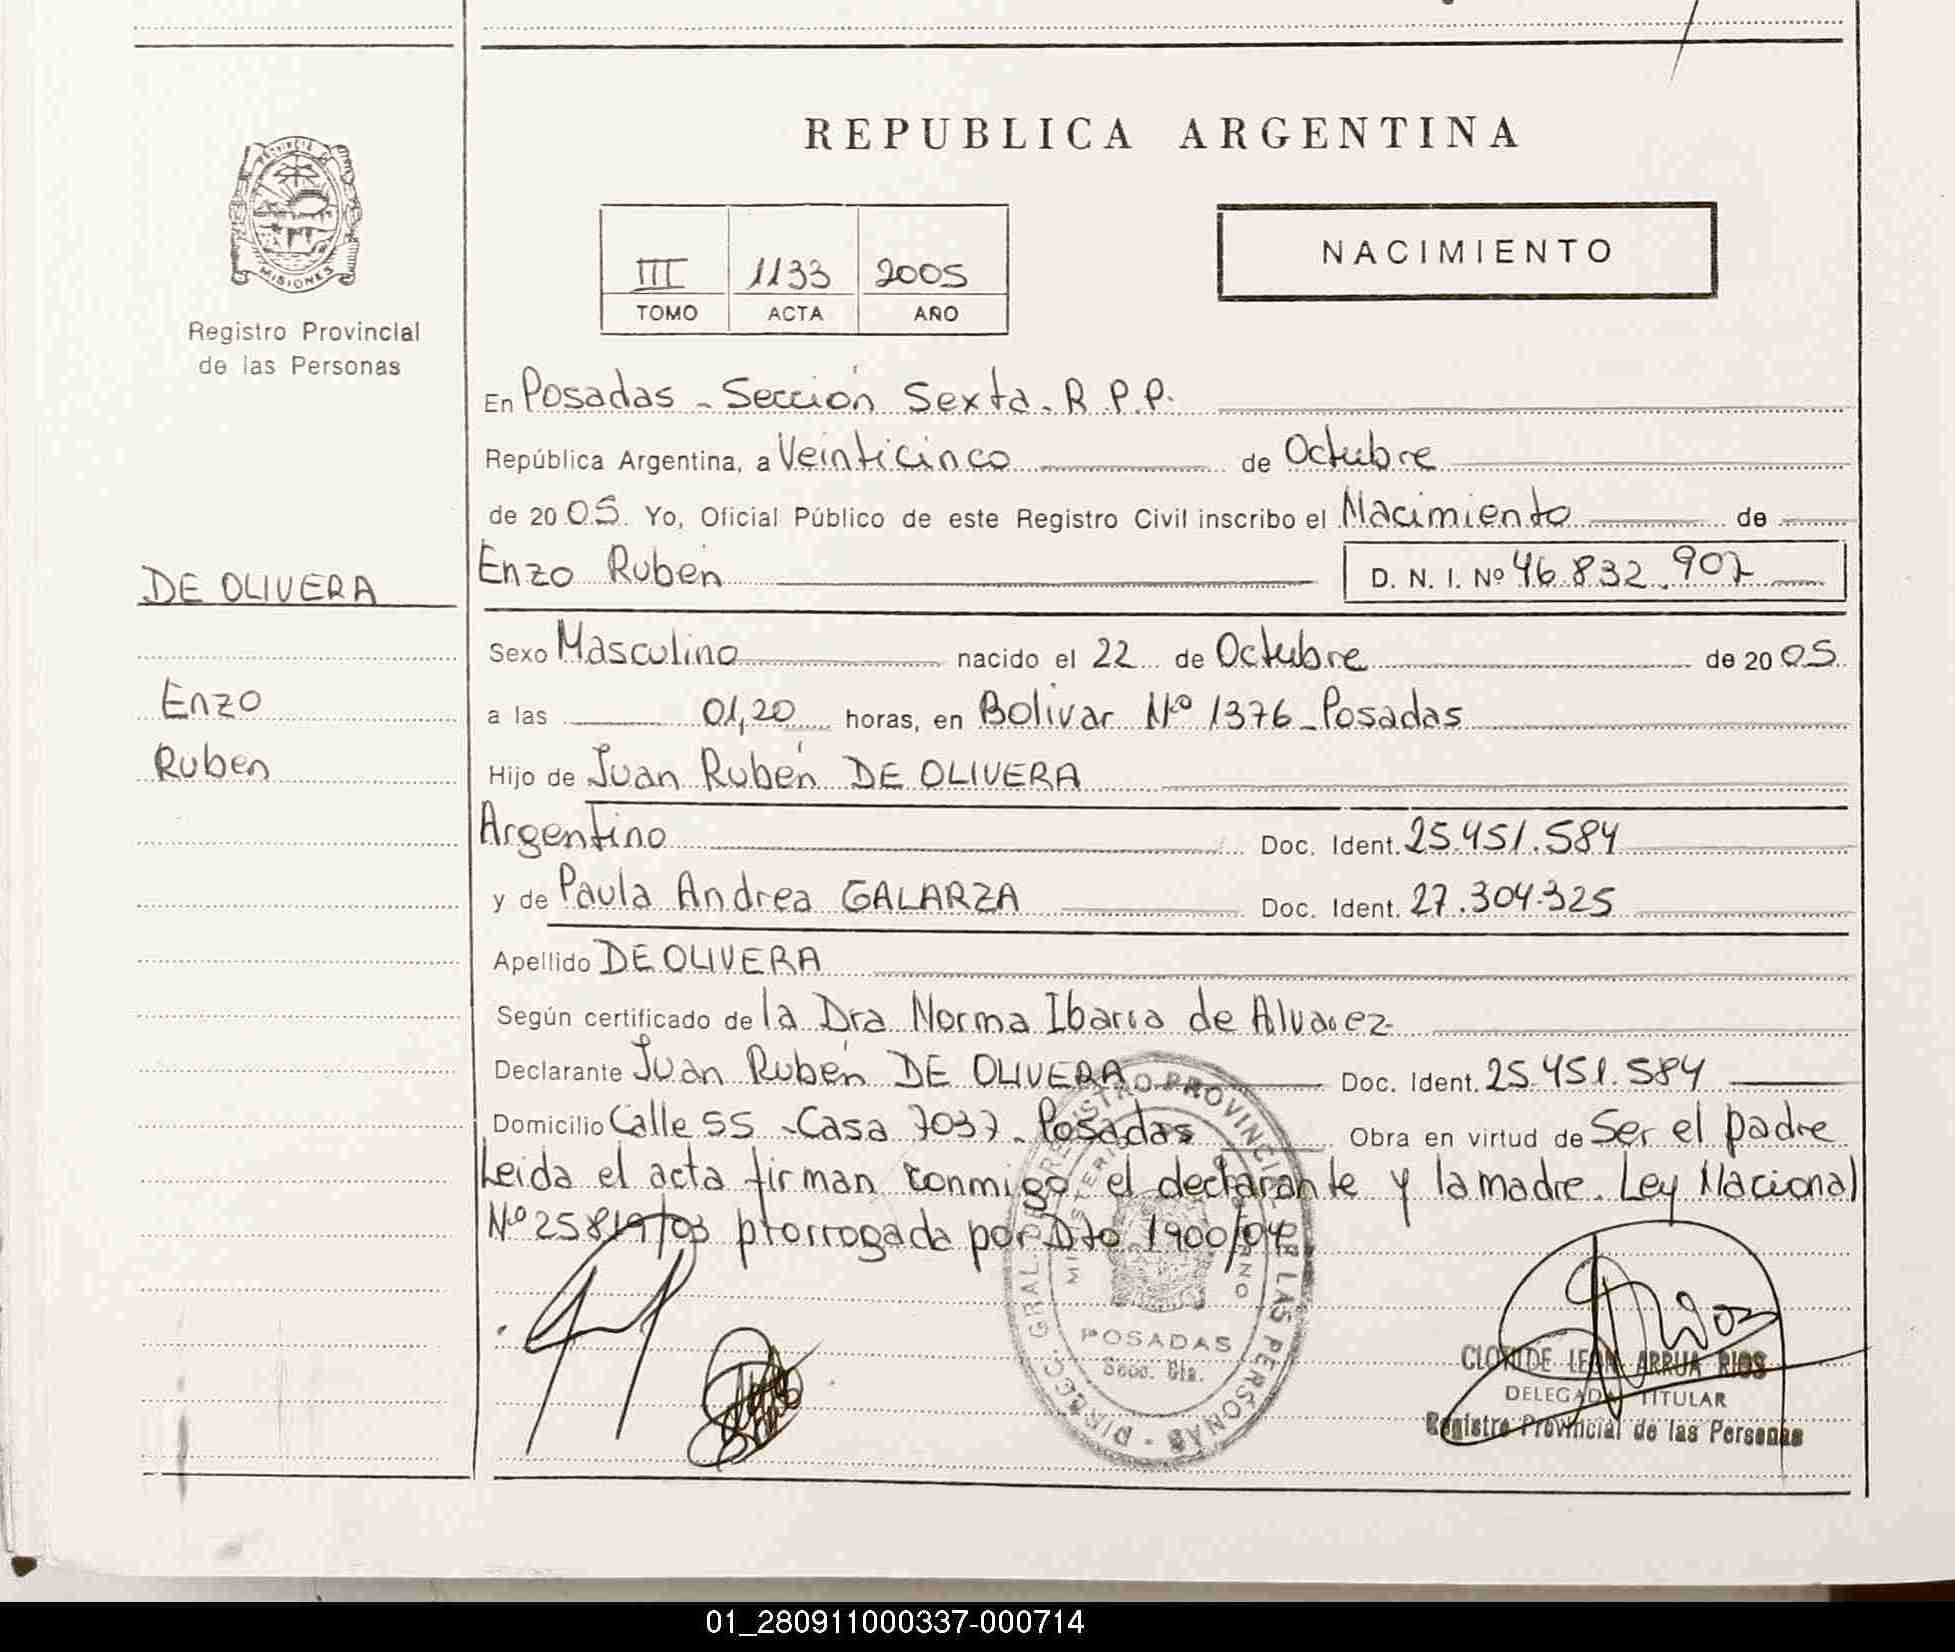 REPUBLICA ARGENTINA
PROVINCIA DE
MISIONES
Registro Provincial
de las Personas
NACIMIENTO
III 1133 2005
TOMO ACTA AÑO
En Posadas - Sección Sexta. R.P.P.
República Argentina, a Veinticinco de Octubre
de 2005. Yo, Oficial Público de este Registro Civil inscribo el Nacimiento de
DE OLIVERA
Enzo Ruben
D. N. I. Nº 46.832.907
Sexo Masculino nacido el 22 de Octubre de 2005
Enzo
a las 01,20 horas, en Bolivar Nº 1376 - Posadas
Ruben
Hijo de Juan Rubén DE OLIVERA
Argentino Doc. Ident. 25.451.584
y de Paula Andrea GALARZA Doc. Ident. 27.304.325
Apellido DE OLIVERA
Según certificado de la Dra Norma Ibarra de Alvarez
Declarante Juan Rubén DE OLIVERA Doc. Ident. 25.451.584
Domicilio Calle 55 - Casa 7037 - Posadas Obra en virtud de Ser el padre
Leida el acta firman conmigo el declarante y la madre. Ley Nacional
Nº 25819/03 prorrogada por Dto 1900/04
DIRECC. GRAL. DE REGISTRO PROVINCIAL DE LAS PERSONAS
POSADAS
Secc. 6ta.
CLOTILDE LEON ARRUA RIOS
DELEGADA TITULAR
Registro Provincial de las Personas
01_280911000337-000714